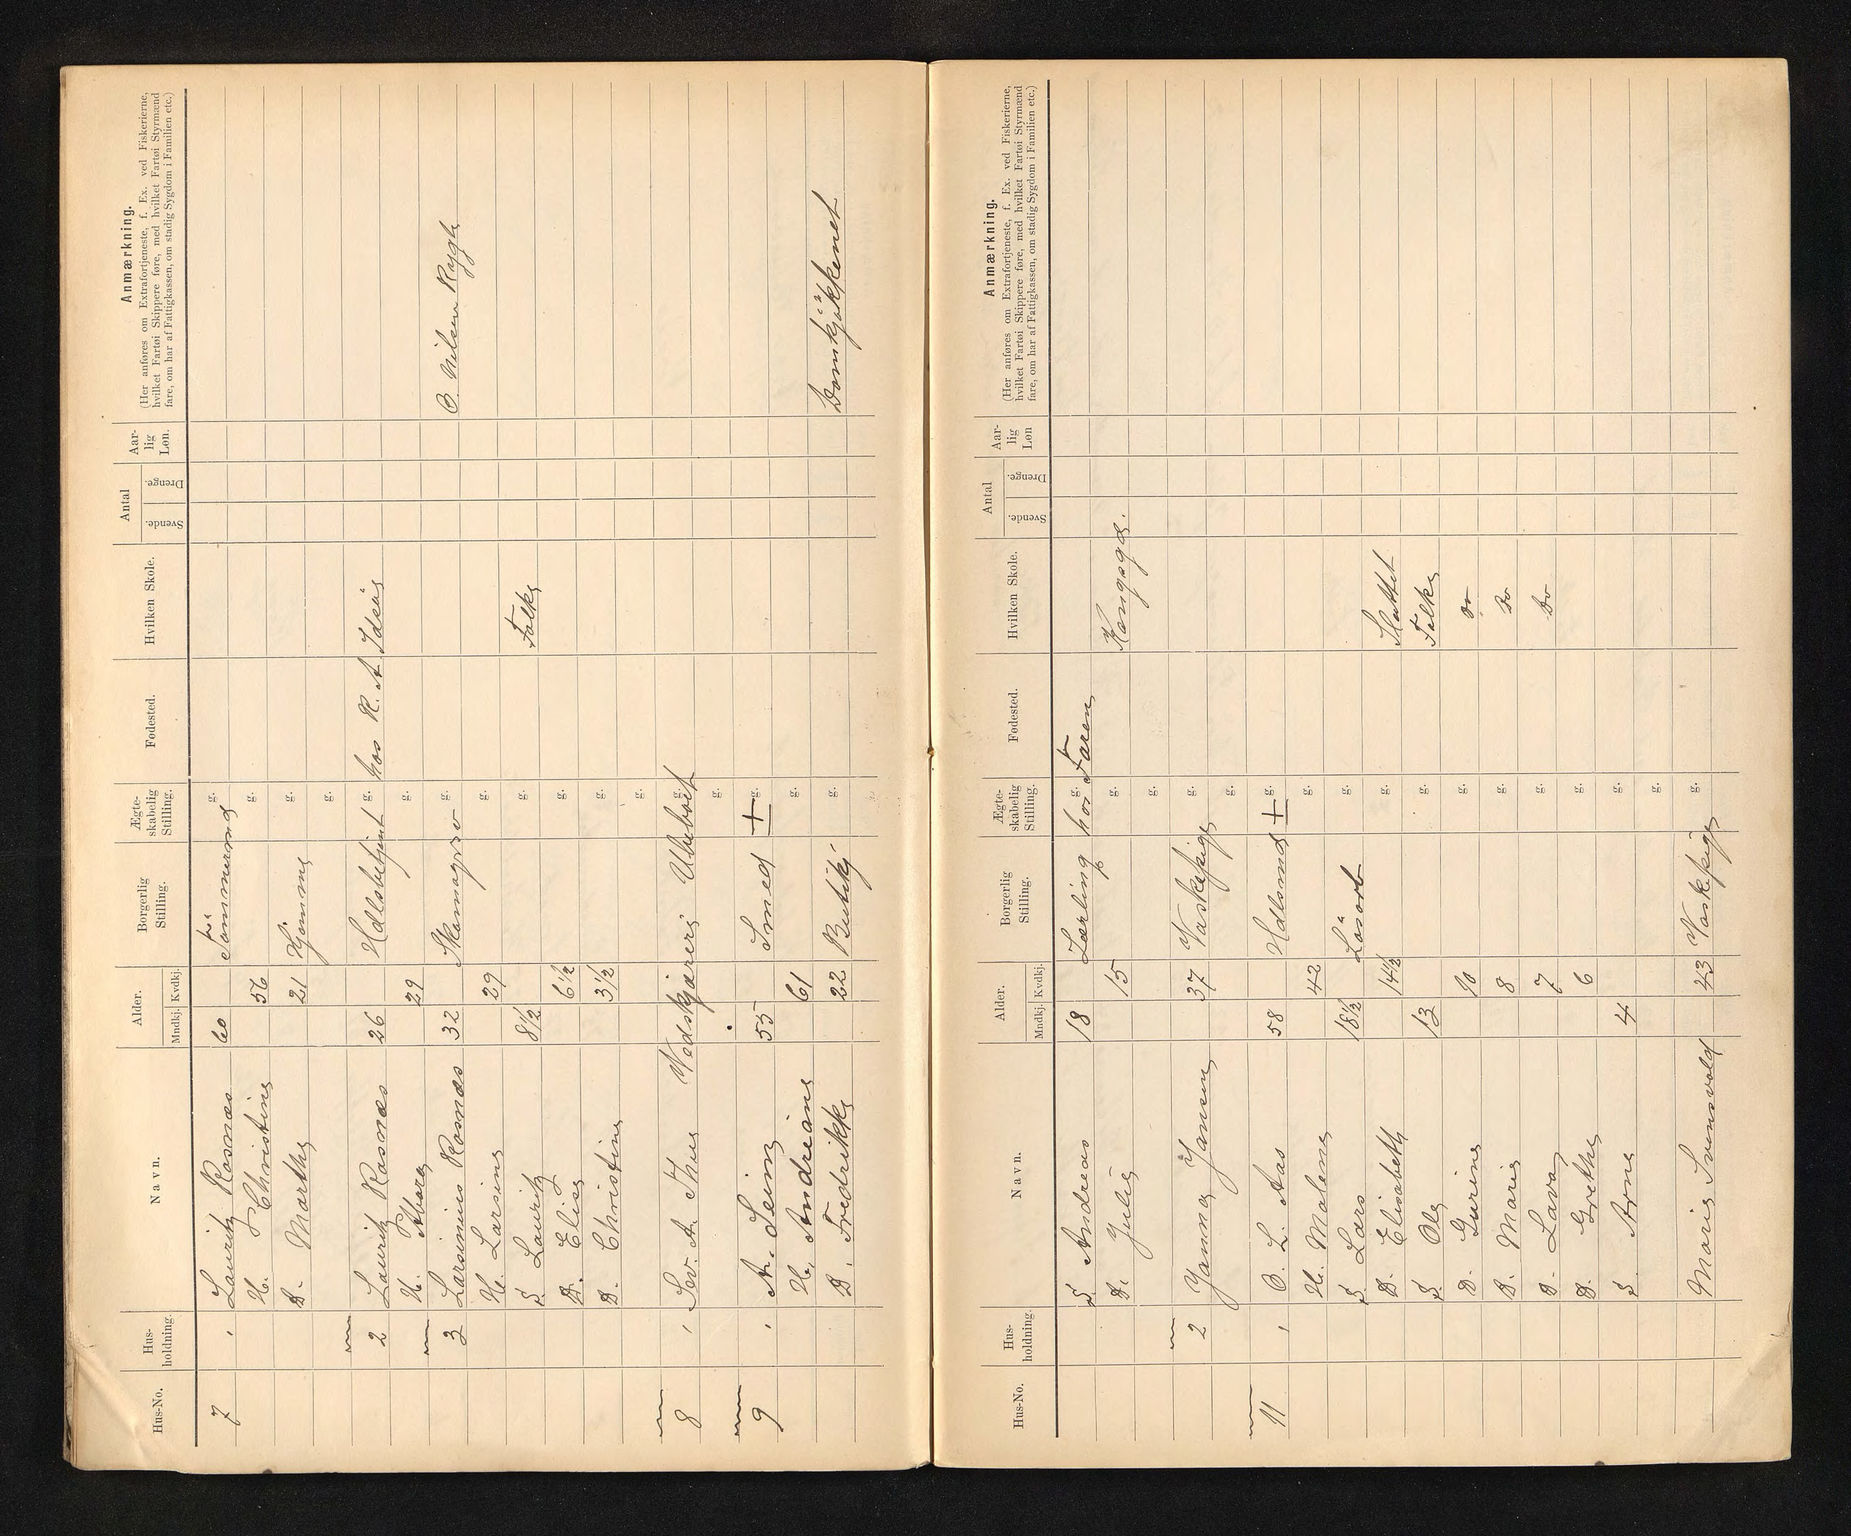 Hus-No. Hus-holdning. Navn. Alder. Mndkj. Kvdkj. Borgerlig Stilling. Ægte-skabelig Stilling. Fødested. Hvilken Skole. Antal Svende. Drenge. Aar-lig Løn. Anmærkning.
(Her anføres om Extrafortjeneste, f. Ex. ved Fiskerierne,
hvilket Fartøi Skippere føre, med hvilket Fartøi Styrmænd
fare, om har af Fattigkassen, om stadig Sygdom i Familien etc.)
7 1 Lauritz Rosnæs 60 Tømmermd g.
H. Christine 56 g.
D. Marthe 21 Hjemme g.
g.
2 Lauritz Rosnæs 26 Hdlsbetjent g. hos R. A. Idsøe
H. Thora 29 g.
3 Larsinius Rosnæs 32 Skomagersv g. O. Nilsen
H. Larsine 29 g.
S. Lauritz 8½ g. Folke
D. Elise 6½ g.
D. Christine 3½ g.
g.
8 1 Sev. A. Thue Vedskjæreri Ubeboet g.
g.
9 1 A. Leim 55 Smed + g.
H. Andreane 61 g.
D. Fredrikke 22 Butikkj g. Domkjøkkenet
Hus-No. Hus-holdning. Navn. Alder. Mndkj. Kvdkj. Borgerlig Stilling. Ægte-skabelig Stilling. Fødested. Hvilken Skole. Antal Svende. Drenge. Aar-lig Løn Anmærkning.
(Her anføres om Extrafortjeneste, f. Ex. ved Fiskerierne,
hvilket Fartøi Skippere føre, med hvilket Fartøi Styrmænd
fare, om har af Fattigkassen, om stadig Sygdom i Familien etc.)
S. Andreas 18 Lærling hos Faren g.
D. Julie 15 g. Kongsgd.
g.
2 Janna Jansen 37 Vaskepige g.
g.
11 1 O. L. Aas 58 Hdlsmd + g.
H. Malene 42 g.
S. Lars 18½ Løsarb g.
D. Elisabeth 14½ g. Sluttet
S. Ole 13 g. Folke
D. Gurine 10 g. do
D. Marie 8 g. do
D. Lava 7 g. do
D. Grethe 6 g.
S. Arne 4 g.
g.
Marie Svensvold 43 Vaskepige g.